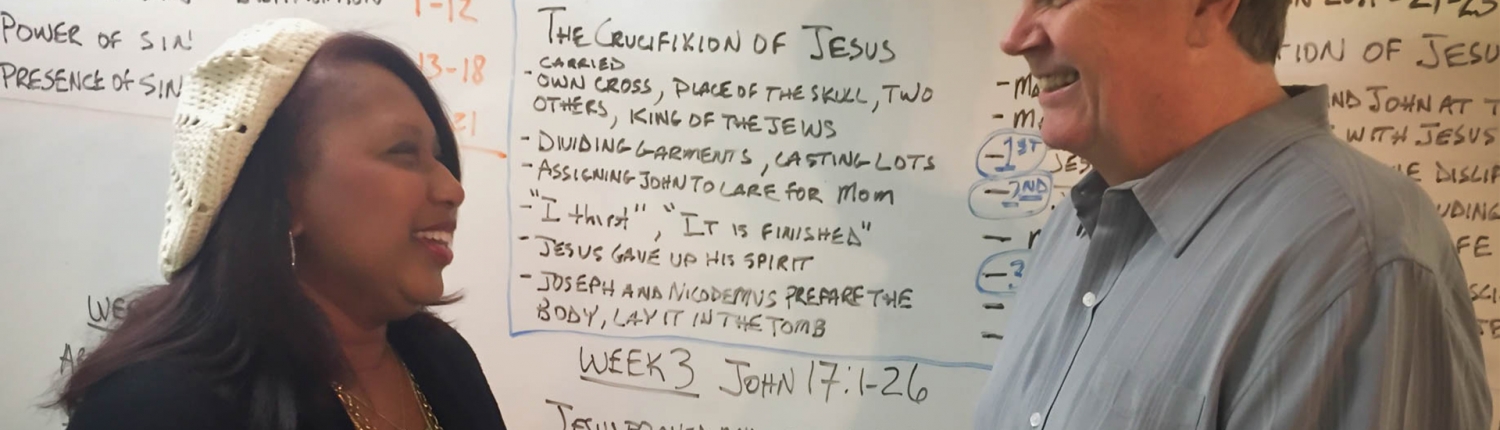 1-12
POWER OF SIN
PRESENCE OF SIN
13-18
21
THE CRUCIFIXION OF JESUS
CARRIED
- OWN CROSS, PLACE OF THE SKULL, TWO
OTHERS, KING OF THE JEWS
- DIVIDING GARMENTS, CASTING LOTS
- ASSIGNING JOHN TO CARE FOR MOM
- "I thirst", "IT IS FINISHED"
- JESUS GAVE UP HIS SPIRIT
- JOSEPH AND NICODEMUS PREPARE THE
BODY, LAY IT IN THE TOMB
WEEK 3 JOHN 17:1-26
- 1ST
- 2ND
ION OF JESU
ND JOHN AT T
WITH JESUS
E DISCIP
UDING
FE